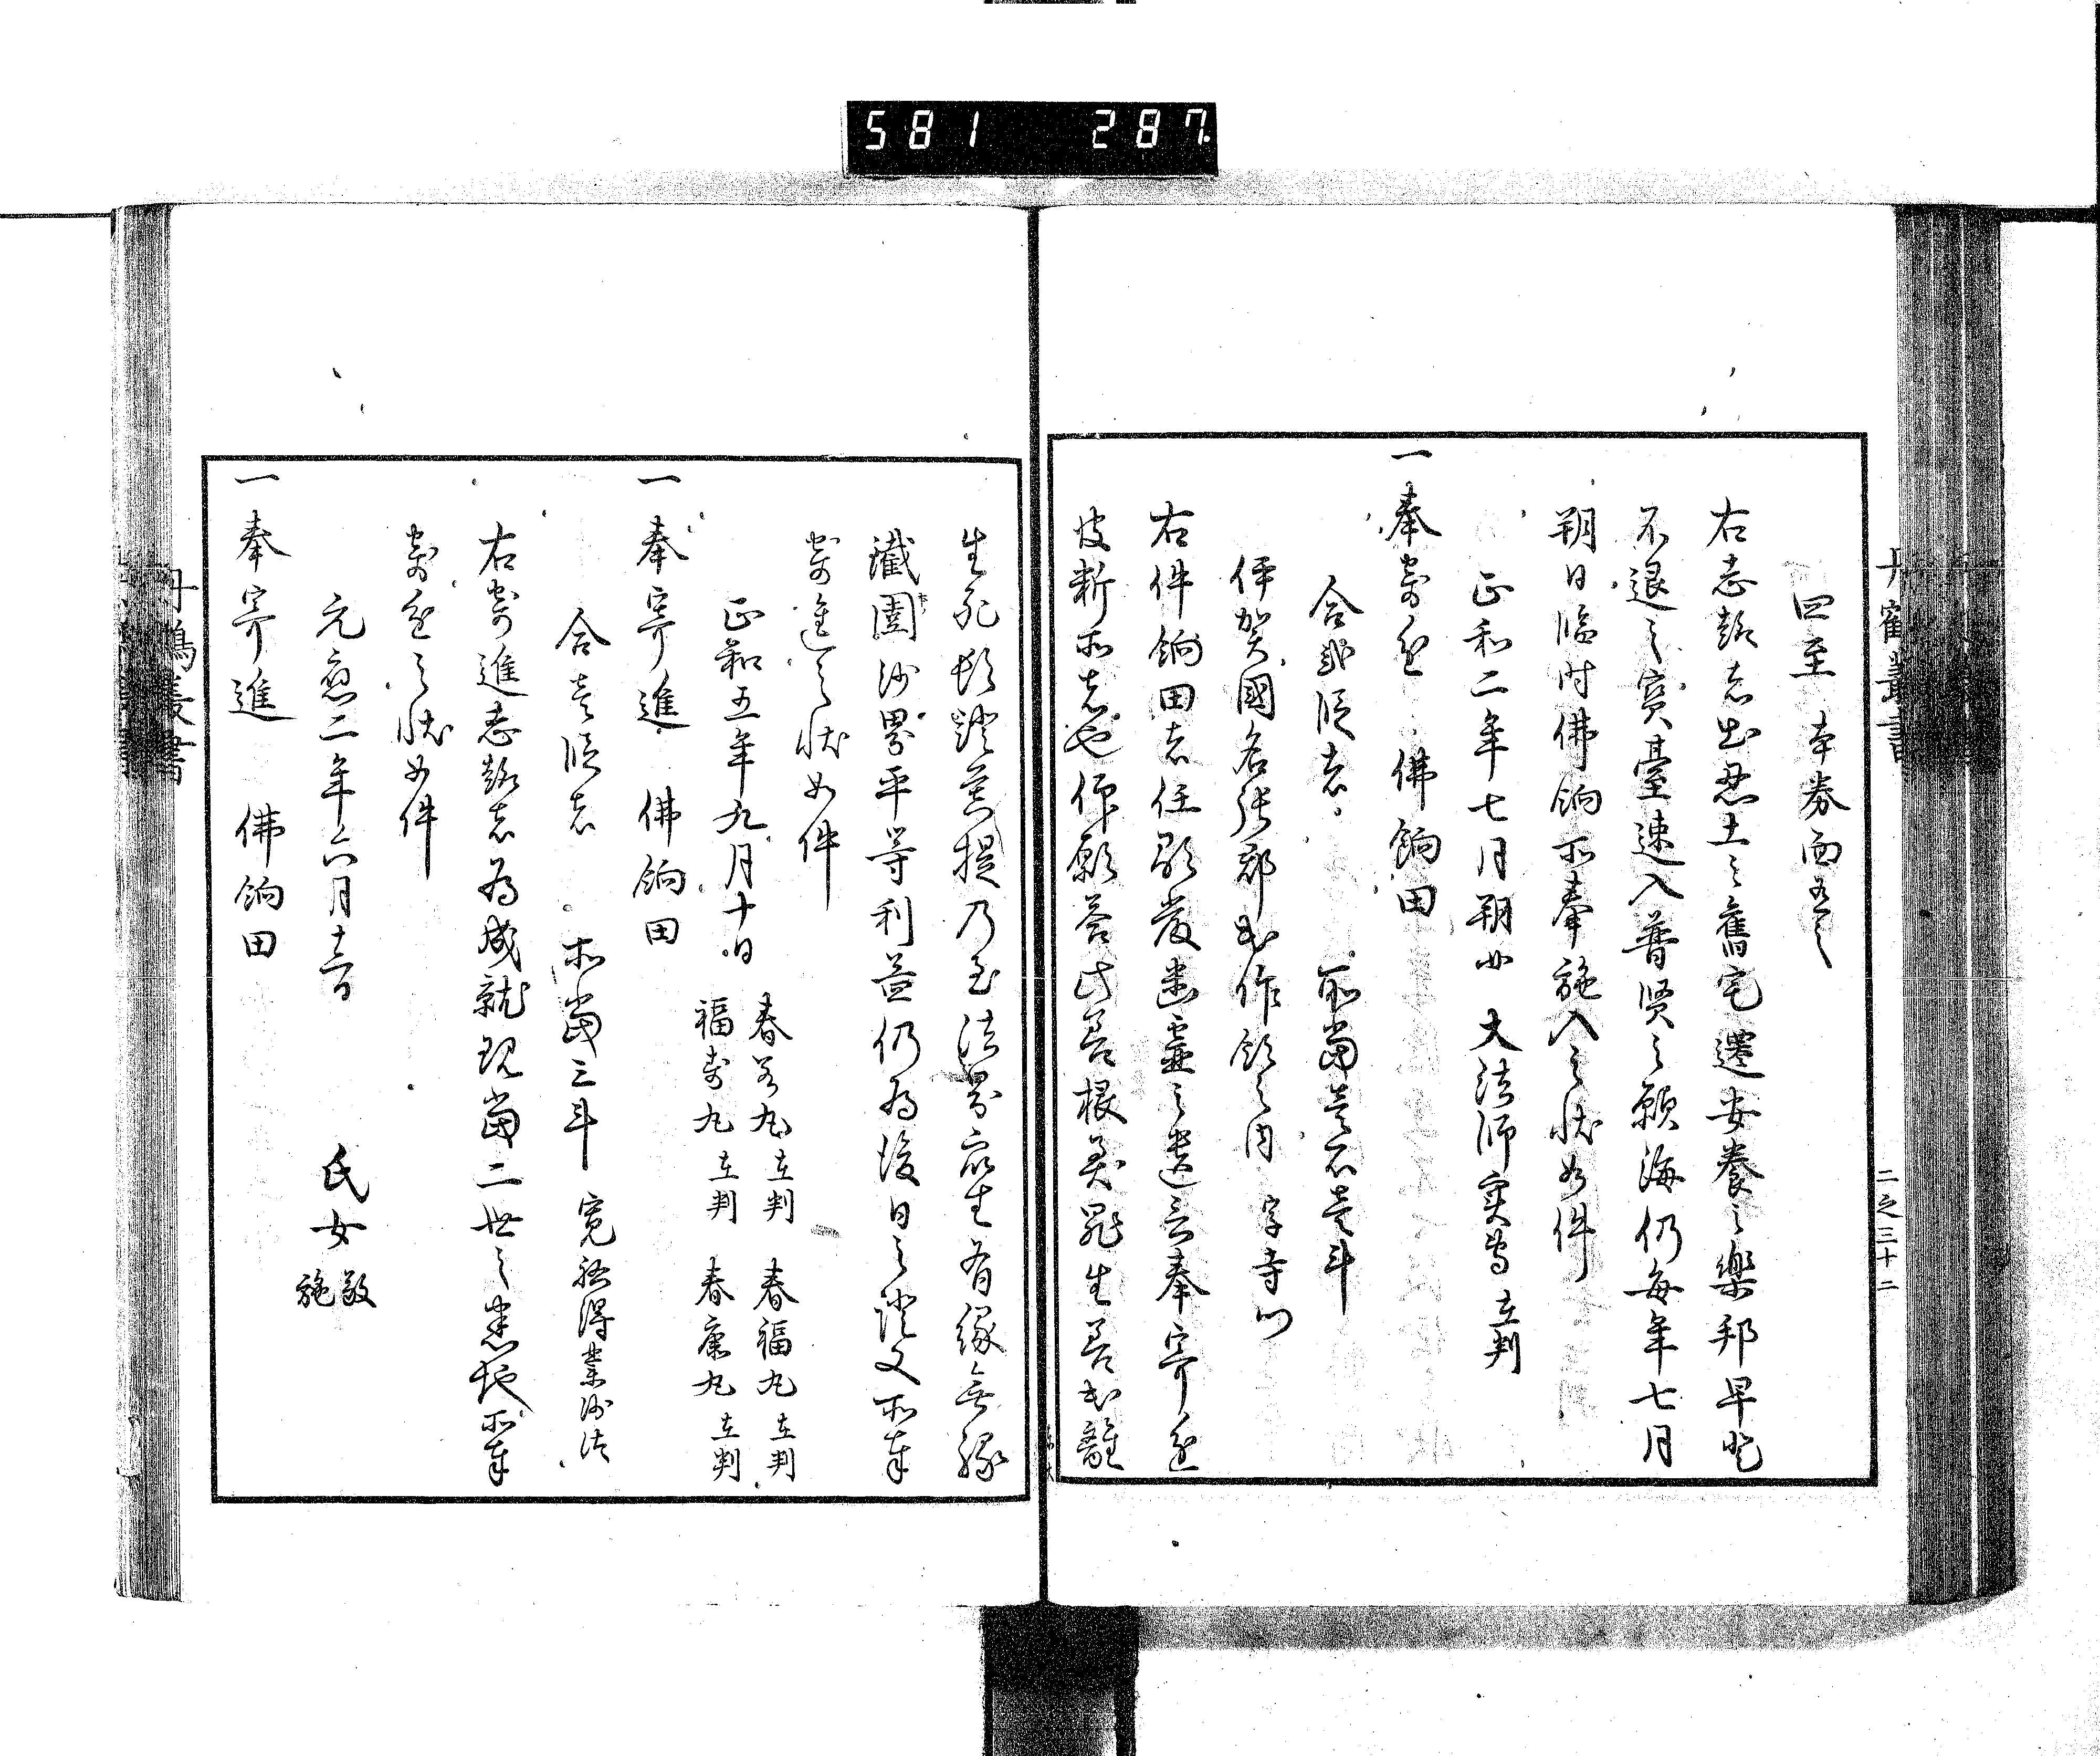 581 287.
丹鶴叢書
二之三十二
四至 本券面在之
右志趣者出忍土之舊宅遷安養之樂邦早登
不退之寶臺速入普賢之願海仍每年七月
朔日臨時佛餉所奉施入之狀如件
正和二年七月朔日 大法師実専 在判
一奉寄進 佛餉田
合貳段者 所當壹石壹斗
伊賀國名張郡 作領之内 字寺
右件餉田者任 發 靈之遺言奉寄進
彼断所者也仰願答此善根滅罪生善出離
生死頓證菩提乃至法界衆生有縁無縁
鐵圍沙界平等利益仍為後日之證文所奉
寄進之狀如件
正和五年九月十日 春若丸在判 春福丸在判
福寿丸在判 春康丸在判
一奉寄進 佛餉田
合壹段者 所當三斗 寛 得業沙汰
右寄進志趣者為成就現當二世之悉地所奉
寄進之狀如件
元應二年六月 日 氏女敬施
一奉寄進 佛餉田
丹鶴叢書